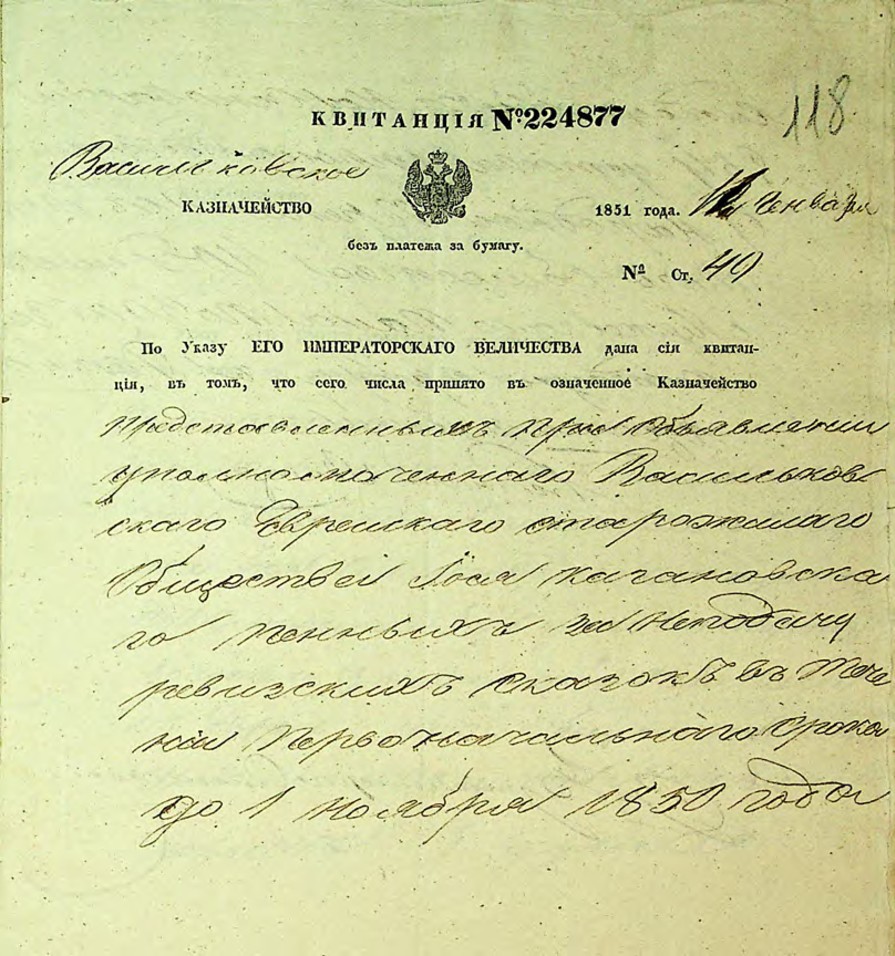 118
КВИТАНЦІЯ №224877
Васильковское
КАЗНАЧЕЙСТВО
1851 года. Генваря
безъ платежа за бумагу.
№ Ст. 49
По Указу ЕГО ИМПЕРАТОРСКАГО ВЕЛИЧЕСТВА дана сія квитан-
ція, въ томъ, что сего числа принято въ означенное Казначейство
представленныхъ при объявленіи
уполномоченнаго Васильков
скаго Еврейскаго старожилаго
Общества Іося Кагановска
го пенныхъ за неподачу
ревизскихъ сказокъ въ тече
ніи первоначальнаго срока
до 1 ноября 1850 года